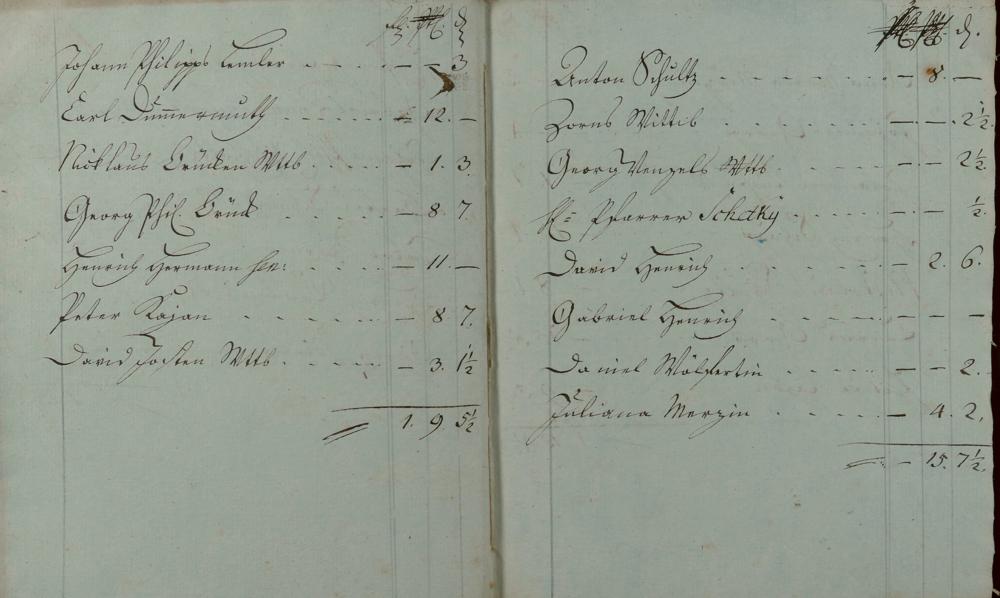 Johann Philipps Lemler - - 3
Carl Dümmermuth - 12. -
Nicklaus Brücken Wttb - 1. 3.
Georg Phil. Brück - 8. 7.
Henrich Hermann sen: - 11. -
Peter Kajan - 8 7.
David Josten Wttb - 3. 1½
1. 9. 5½
d.
Anton Schultz - 8. -
Zorns Wittib - - 2½
Georg Wenzels Wttb - - 2½
H= Pfarrer Schetky - - ½.
David Henrich - 2. 6.
Gabriel Henrich - - -
Daniel Wölfertin - - 2.
Juliana Merzin - 4. 2.
- 15. 7½.